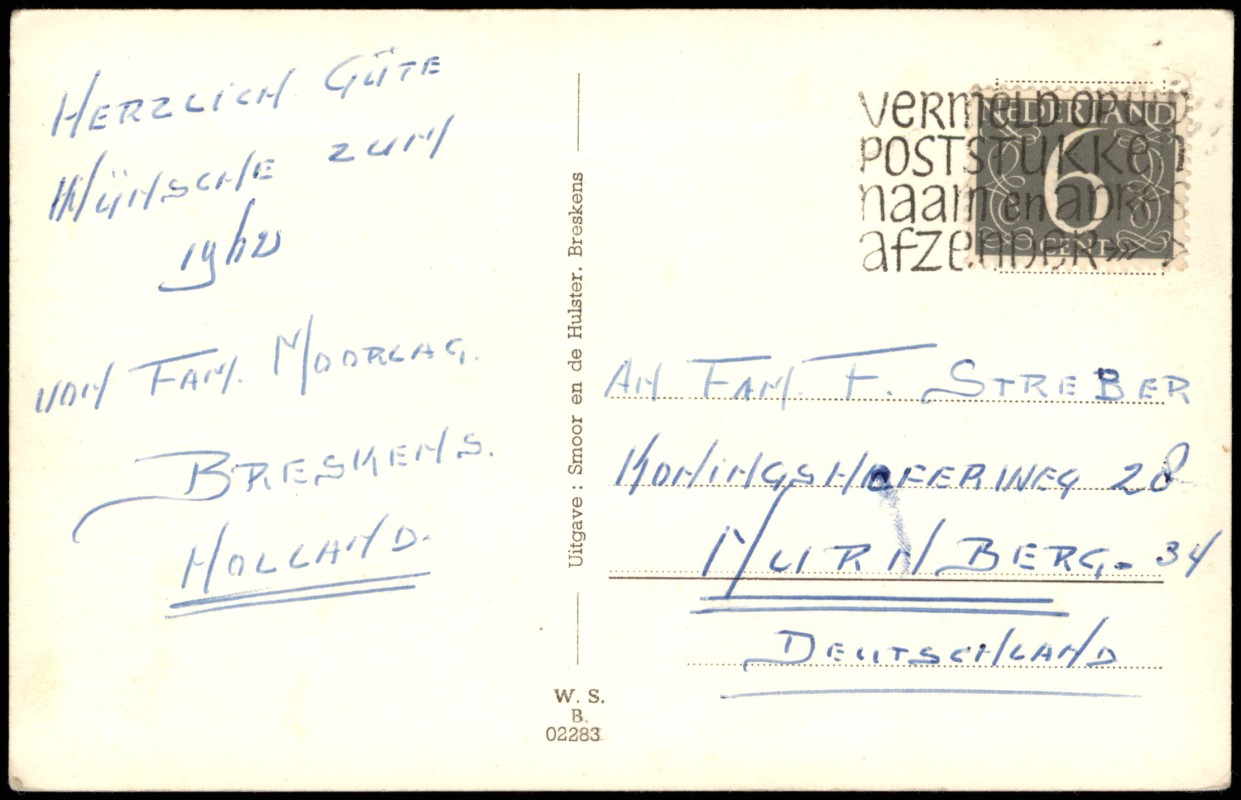 HERZLICH GÜTE
WÜNSCHE ZUM
VON FAM. MOORLAG.
BRESKENS.
HOLLAND.
Uitgave: Smoor en de Hulster, Breskens
W. S.
B.
02283
VERMELD OP UW
POSTSTUKKEN
naam en ADRES
afzender
NEDERLAND
6
CENT
AN FAM. F. STREBER
KONINGSHOFERWEG 28
NURNBERG - 34
DEUTSCHLAND